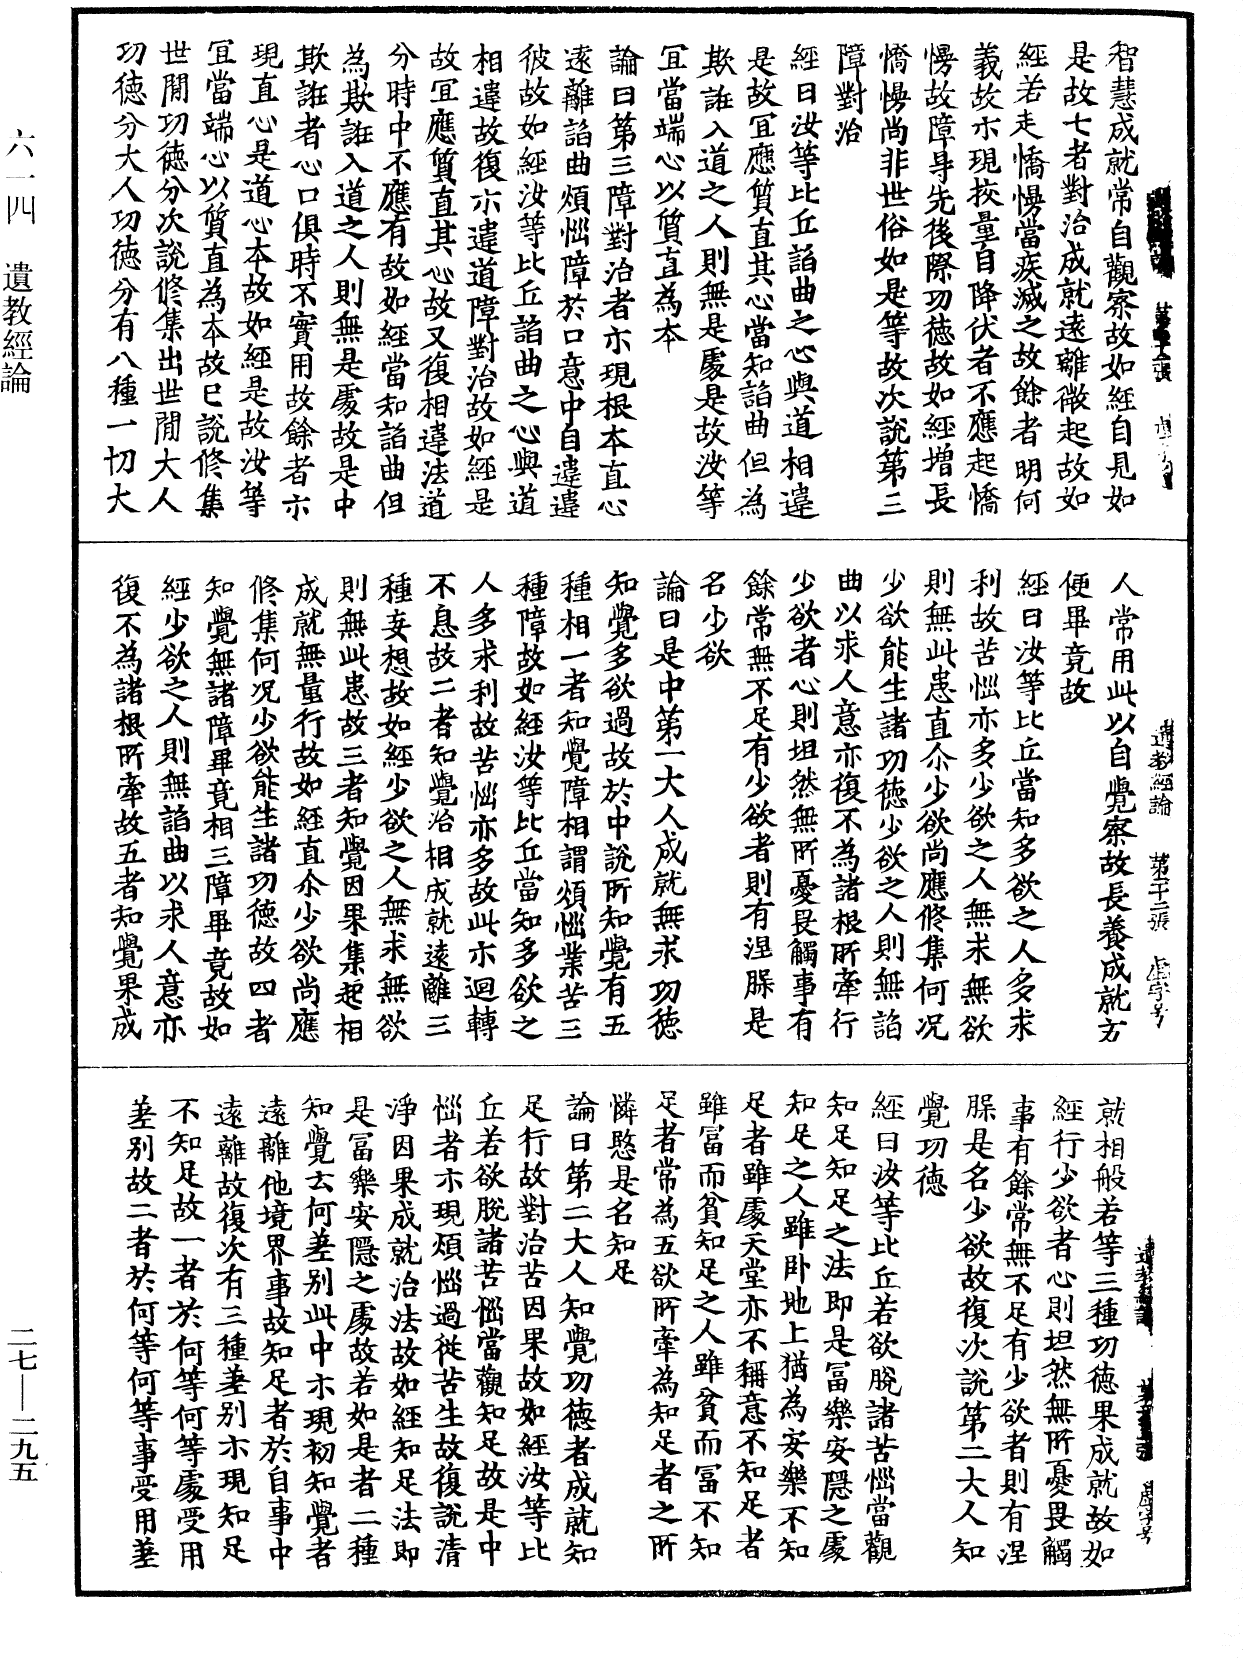 智慧成就常自觀察故如經自見如
是故七者對治成就遠離微起故如
經若走憍慢當疾滅之故餘者明何
義故示現挍量自降伏者不應起憍
慢故障㝵先後際功德故如經增長
憍慢尚非世俗如是等故次說第三
障對治
經曰汝等比丘諂曲之心與道相違
是故冝應質直其心當知諂曲但為
欺誑入道之人則無是處是故汝等
冝當端心以質直為本
論曰第三障對治者示現根本直心
遠離諂曲煩惱障於口意中自違違
彼故如經汝等比丘諂曲之心與道
相違故復示違道障對治故如經是
故冝應質直其心故又復相違法道
分時中不應有故如經當知諂曲但
為欺誑入道之人則無是處故是中
欺誑者心口俱時不實用故餘者示
現直心是道心本故如經是故汝等
冝當端心以質直為本故已說修集
世間功德分次說修集出世間大人
功德分大人功德分有八種一切大
人常用此以自覺察故長養成就方
便畢竟故
經曰汝等比丘當知多欲之人多求
利故苦惱亦多少欲之人無求無欲
則無此患直尒少欲尚應修集何况
少欲能生諸功德少欲之人則無諂
曲以求人意亦復不為諸根所牽行
少欲者心則坦然無所憂畏觸事有
餘常無不足有少欲者則有涅槃是
名少欲
論曰是中第一大人成就無求功德
知覺多欲過故於中說所知覺有五
種相一者知覺障相謂煩惱業苦三
種障故如經汝等比丘當知多欲之
人多求利故苦惱亦多故此示迴轉
不息故二者知覺治相成就遠離三
種妄想故如經少欲之人無求無欲
則無此患故三者知覺因果集起相
成就無量行故如經直尒少欲尚應
修集何况少欲能生諸功德故四者
知覺無諸障畢竟相三障畢竟故如
經少欲之人則無諂曲以求人意亦
復不為諸根所牽故五者知覺果成
就相般若等三種功德果成就故如
經行少欲者心則坦然無所憂畏觸
事有餘常無不足有少欲者則有涅
槃是名少欲故復次說第二大人知
覺功德
經曰汝等比丘若欲脫諸苦惱當觀
知足知足之法即是冨樂安隱之處
知足之人雖卧地上猶為安樂不知
足者雖處天堂亦不稱意不知足者
雖冨而貧知足之人雖貧而冨不知
足者常為五欲所牽為知足者之所
憐愍是名知足
論曰第二大人知覺功德者成就知
足行故對治苦因果故如經汝等比
丘若欲脫諸苦惱當觀知足故是中
惱者示現煩惱過從苦生故復說清
淨因果成就治法故如經知足法即
是冨樂安隱之處故若如是者二種
知覺云何差別此中示現初知覺者
遠離他境界事故知足者於自事中
遠離故復次有三種差別示現知足
不知足故一者於何等何等處受用
差別故二者於何等何等事受用差
遺教經論 第十二張 虛字号
六一四 遺教經論
二七—二九五